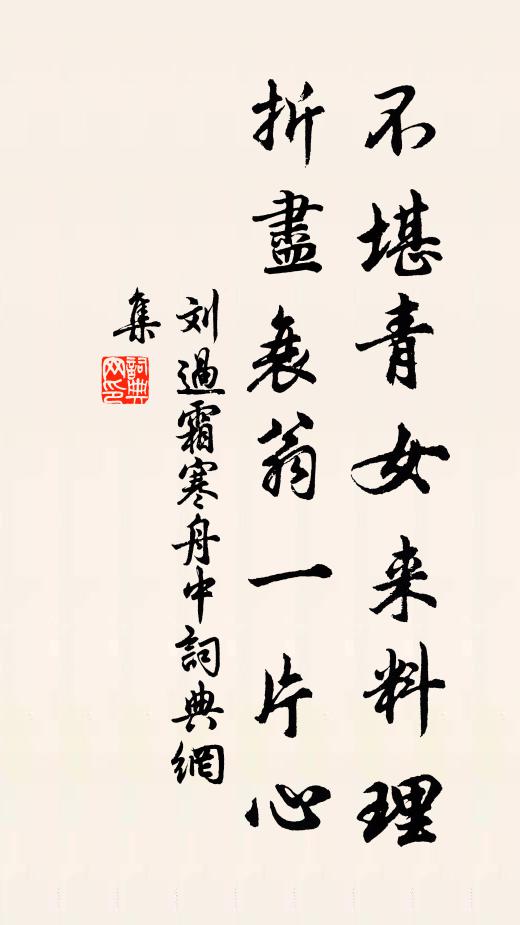 不堪青女来料理
折盡衰翁一片心
刘過霜寒舟中詞典網
集
詞典
网印